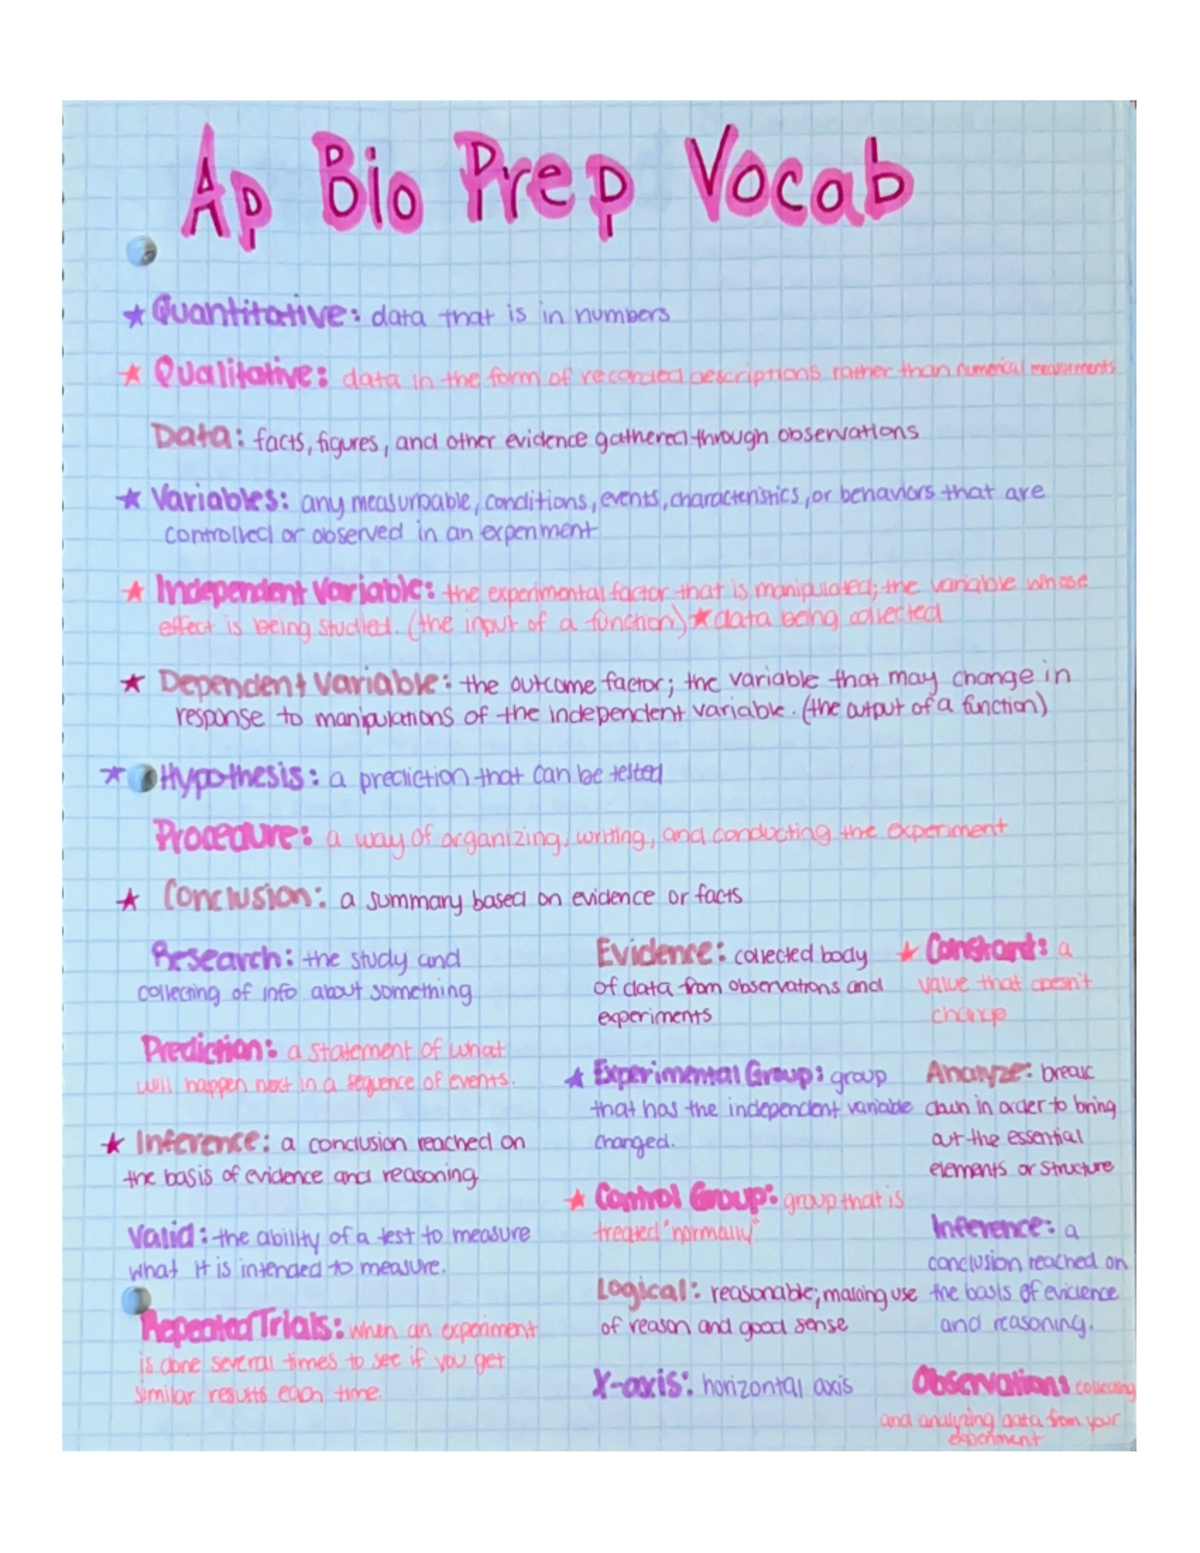 Ap Bio Prep Vocab
★ Quantitative: data that is in numbers
★ Qualitative: data in the form of recorded descriptions rather than numerical measurements
Data: facts, figures, and other evidence gathered through observations
★ Variables: any measurpable, conditions, events, characteristics, or behaviors that are
controlled or observed in an experiment
★ Independent Variable: the experimental factor that is manipulated; the variable whose
effect is being studied. (the input of a function) ★ data being collected
★ Dependent Variable: the outcome factor; the variable that may change in
response to manipulations of the independent variable. (the output of a function)
★ Hypothesis: a prediction that can be tested
Procedure: a way of organizing, writing, and conducting the experiment
★ Conclusion: a summary based on evidence or facts
Research: the study and
collecting of info about something
Prediction: a statement of what
will happen next in a sequence of events.
★ Inference: a conclusion reached on
the basis of evidence and reasoning
Valid: the ability of a test to measure
what it is intended to measure.
Repeated Trials: when an experiment
is done several times to see if you get
similar results each time.
Evidence: collected body
of data from observations and
experiments
★ Experimental Group: group
that has the independent variable
changed.
★ Control Group: group that is
treated "normally"
Logical: reasonable; making use
of reason and good sense
X-axis: horizontal axis
★ Constant: a
value that doesn't
change
Analyze: break
down in order to bring
out the essential
elements or structure
Inference: a
conclusion reached on
the basis of evidence
and reasoning.
Observations collecting
and analyzing data from your
experiment